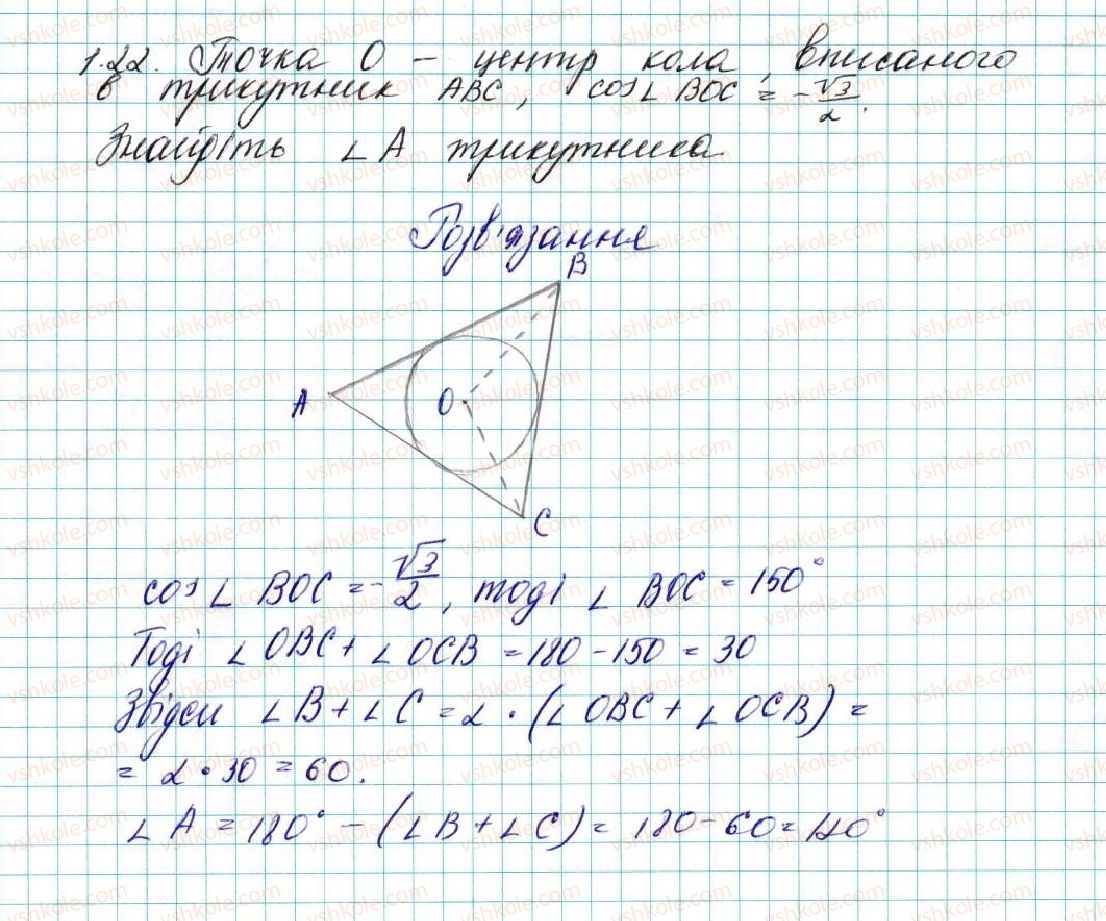 1.22. Точка О - центр кола, вписаного
в трикутник ABC, cos∠BOC = -√3/2.
Знайдіть ∠A трикутника
Розв'язання
B
A
O
C
cos∠BOC = -√3/2, тоді ∠BOC = 150°
Тоді ∠OBC + ∠OCB = 180 - 150 = 30
Звідси ∠B + ∠C = 2 · (∠OBC + ∠OCB) =
= 2 · 30 = 60.
∠A = 180° - (∠B + ∠C) = 180 - 60 = 120°
vshkole.com